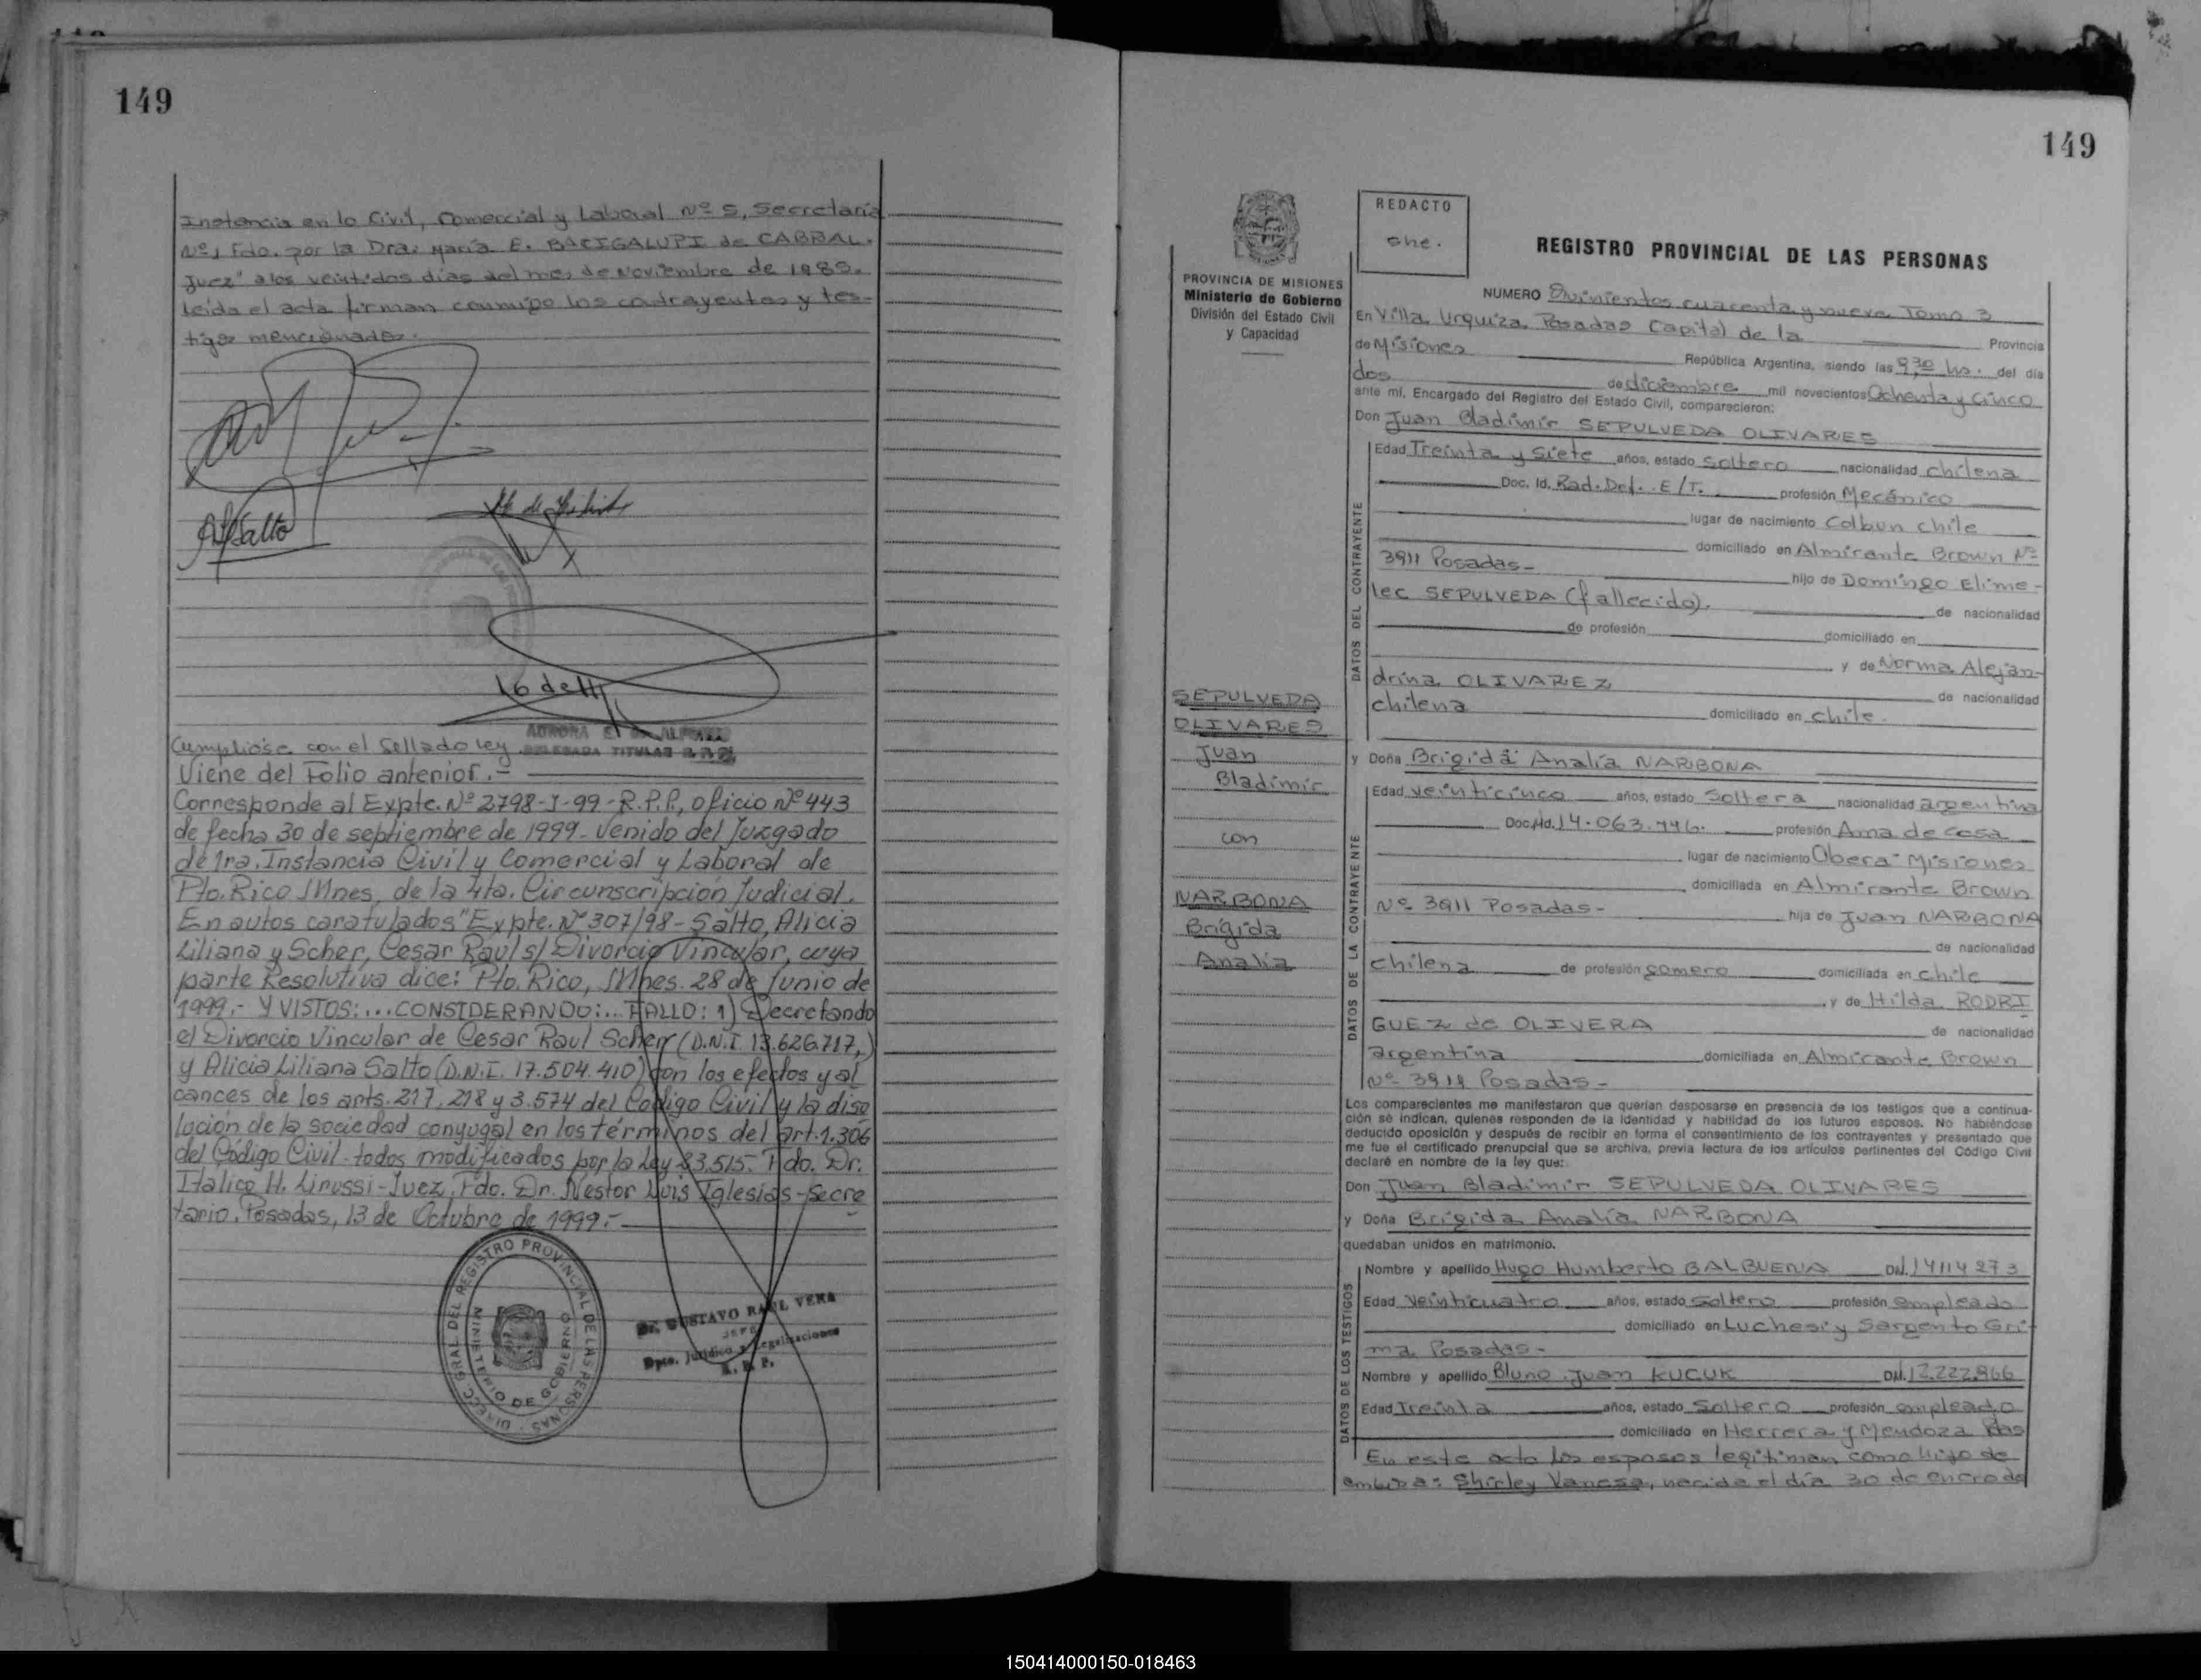 149
Instancia en lo Civil, Comercial y Laboral Nº 5, Secretaría
Nº 1 Fdo. por la Dra. María E. BACIGALUPI de CABRAL.
Juez" a los veintidos días del mes de Noviembre de 1985.
Leída el acta firman conmigo los contrayentes y tes-
tigos mencionados.
ALSalto
AURORA E ALFONZO
DELEGADA TITULAR R.P.P.
Cumplióse con el Sellado ley
Viene del Folio anterior.-
Corresponde al Expte. Nº 2798-I-99-R.P.P., oficio Nº 443
de fecha 30 de septiembre de 1999- venido del Juzgado
de 1ra. Instancia Civil y Comercial y Laboral de
Pto. Rico Mnes, de la 4ta. Circunscripción Judicial.
En autos caratulados "Expte. Nº 307/98-Salto, Alicia
Liliana y Scher, Cesar Raúl s/ Divorcio Vincular, cuya
parte Resolutiva dice: Pto. Rico, Mnes. 28 de Junio de
1999.- Y VISTOS:... CONSIDERANDO:... FALLO: 1) Decretando
el Divorcio Vincular de Cesar Raul Scherr (D.N.I. 13.626.717,)
y Alicia Liliana Salto (D.N.I. 17.504.410) con los efectos y al
cances de los arts. 217, 218 y 3.574 del Codigo Civil y la diso
lución de la sociedad conyugal en los términos del art. 1.306
del Código Civil-todos modificados por la Ley 23.515. Fdo. Dr.
Italico H. Lirussi-Juez, Fdo. Dr. Nestor Luis Iglesias-Secre
tario. Posadas, 13 de Octubre de 1999.-
DIRECC. GRAL. DEL REGISTRO PROVINCIAL DE LAS PERSONAS
MINISTERIO DE GOBIERNO
Dr. GUSTAVO RAUL VERA
JEFE
Dpto. Jurídico y Legalizaciones
R. P. P.
149
PROVINCIA DE MISIONES
Ministerio de Gobierno
División del Estado Civil
y Capacidad
SEPULVEDA
OLIVARES
Juan
Bladimir
con
NARBONA
Brígida
Analía
REDACTO
che.
REGISTRO PROVINCIAL DE LAS PERSONAS
NUMERO Quinientos cuarenta y nueve Tomo 3
En Villa Urquiza Posadas Capital de la Provincia
de Misiones República Argentina, siendo las 9,30 hs. del día
dos de diciembre mil novecientos Ochenta y Cinco
ante mí, Encargado del Registro del Estado Civil, comparecieron:
Don Juan Bladimir SEPULVEDA OLIVARES
DATOS DEL CONTRAYENTE
Edad Treinta y Siete años, estado Soltero nacionalidad chilena
Doc. Id. Rad. Def. E/T. profesión Mecánico
lugar de nacimiento Colbun chile
domiciliado en Almirante Brown Nº
3911 Posadas- hijo de Domingo Elime-
lec SEPULVEDA (fallecido). de nacionalidad
de profesión domiciliado en
y de Norma Alejan-
drina OLIVAREZ de nacionalidad
chilena domiciliado en Chile.
y Doña Brigida Analía NARBONA
DATOS DE LA CONTRAYENTE
Edad veinticinco años, estado Soltera nacionalidad argentina
Doc. Id. 14.063.446. profesión Ama de casa
lugar de nacimiento Obera-Misiones
domiciliada en Almirante Brown
Nº 3911 Posadas- hija de Juan NARBONA
de nacionalidad
chilena de profesión gomero domiciliada en chile
y de Hilda RODRI
GUEZ de OLIVERA de nacionalidad
argentina domiciliada en Almirante Brown
Nº 3911 Posadas-
Los comparecientes me manifestaron que querían desposarse en presencia de los testigos que a continua-
ción se indican, quienes responden de la identidad y habilidad de los futuros esposos. No habiéndose
deducido oposición y después de recibir en forma el consentimiento de los contrayentes y presentado que
me fue el certificado prenupcial que se archiva, previa lectura de los artículos pertinentes del Código Civil
declaré en nombre de la ley que:
Don Juan Bladimir SEPULVEDA OLIVARES
y Doña Brigida Analía NARBONA
quedaban unidos en matrimonio.
DATOS DE LOS TESTIGOS
Nombre y apellido Hugo Humberto BALBUENA DNI. 14114273
Edad Veinticuatro años, estado Soltero profesión empleado
domiciliado en Luchesi y Sargento Gri-
ma Posadas-
Nombre y apellido Bluno Juan KUCUK DNI. 12.222.966
Edad Treinta años, estado Soltero profesión empleado
domiciliado en Herrera y Mendoza Pdas
En este acto los esposos legitiman como hijo de
ambos a: Shirley Vanesa, nacida el día 30 de enero de
150414000150-018463